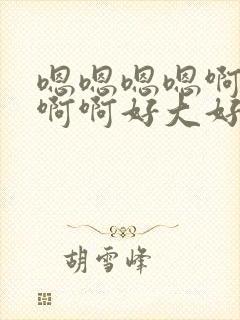 嗯嗯嗯嗯啊
啊啊好大好
胡雪峰